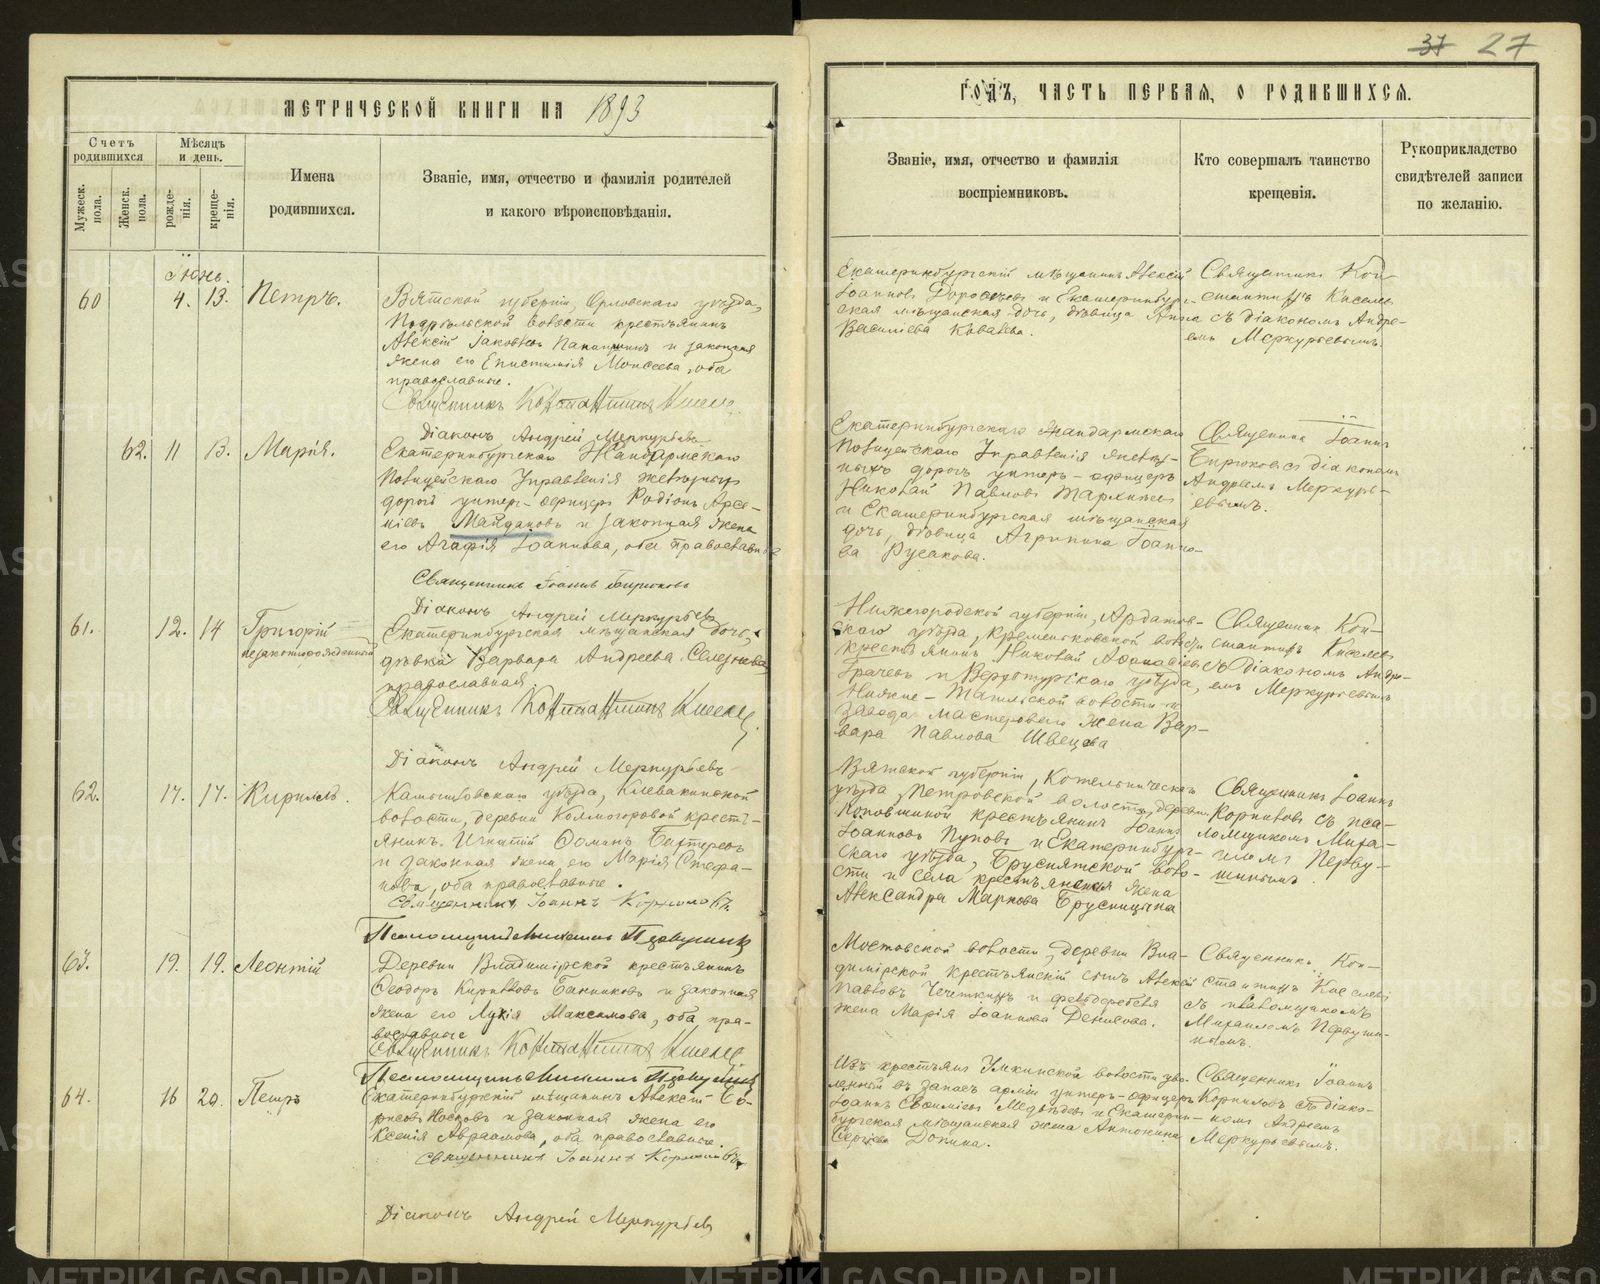 37 27
МЕТРИЧЕСКОЙ КНИГИ НА 1893
ГОДЪ, ЧАСТЬ ПЕРВАЯ, О РОДИВШИХСЯ.
Счетъ родившихся
Мужеск. пола.
Женск. пола.
Мѣсяцъ и день.
рожде-нія.
креще-нія.
Имена
родившихся.
Званіе, имя, отчество и фамилія родителей
и какого вѣроисповѣданія.
Званіе, имя, отчество и фамилія
воспріемниковъ.
Кто совершалъ таинство
крещенія.
Рукоприкладство
свидѣтелей записи
по желанію.
Іюнь.
60 4. 13. Петръ.
Вятской губерніи, Орловскаго уѣзда,
волости крестьянинъ
Алексій Іаковлевъ и законная
жена его Епистимія Моисеева, оба
православные.
Священникъ Константинъ
Діаконъ Андрей Меркурьевъ
Екатеринбургскій мѣщанинъ Алексій
Іоанновъ и Екатеринбург-
ская мѣщанская дочь, дѣвица Анна
Василіева
Священникъ Кон-
стантинъ Киселевъ
съ діакономъ Андре-
емъ Меркурьевымъ.
62. 11 13. Марія.
Екатеринбургскаго Жандармскаго
Полицейскаго Управленія желѣзныхъ
дорогъ унтеръ-офицеръ Родіонъ Арсе-
ніевъ Майдановъ и законная жена
его Агафія Іоаннова, оба православные
Священникъ Іоаннъ Бирюковъ
Діаконъ Андрей Меркурьевъ
Екатеринбургскаго Жандармскаго
Полицейскаго Управленія желѣз-
ныхъ дорогъ унтеръ-офицеръ
Николай Павловъ
и Екатеринбургская мѣщанская
дочь, дѣвица Агрипина Іоанно-
ва Русакова.
Священникъ Іоаннъ
Бирюковъ съ діакономъ
Андреемъ Меркурь-
евымъ.
61. 12. 14 Григорій
незаконнорожденный
Екатеринбургская мѣщанская дочь,
дѣвка Варвара Андреева Селезнева
православная.
Священникъ Константинъ
Діаконъ Андрей Меркурьевъ
Нижегородской губерніи, Ардатов-
скаго уѣзда, Кременковской волости
крестьянинъ Николай Аѳанасіевъ
Грачевъ и Верхотурскаго уѣзда,
Нижне-Тагильской волости и
завода мастероваго жена Вар-
вара Павлова Швецова
Священникъ Кон-
стантинъ Киселевъ
съ діакономъ Андре-
емъ Меркурьевымъ
62. 17. 17. Кириллъ.
Камышловскаго уѣзда, Клевакинской
волости, деревни Колмогоровой кресть-
янинъ Игнатій Ѳоминъ
и законная жена его Марія Стефа-
нова, оба православные.
Священникъ Іоаннъ Корниловъ
Псаломщикъ Михаилъ Первушинъ
Вятской губерніи, Котельническаго
уѣзда, Петровской волости, деревни
крестьянинъ Іоаннъ
Іоанновъ Пуповъ и Екатеринбург-
скаго уѣзда, Бруснятской воло-
сти и села крестьянская жена
Александра Маркова Брусницына
Священникъ Іоаннъ
Корниловъ съ пса-
ломщикомъ Миха-
иломъ Перву-
шинымъ.
63. 19. 19. Леонтій
Деревни Владимірской крестьянинъ
Ѳеодоръ Кирилловъ Банниковъ и законная
жена его Лукія Максимова, оба пра-
вославные
Священникъ Константинъ
Псаломщикъ Михаилъ Первушинъ
Мостовской волости, деревни Вла-
димірской крестьянскій сынъ Алексій
Павловъ и
жена Марія Іоаннова Денисова.
Священникъ Кон-
стантинъ Киселевъ
съ псаломщикомъ
Михаиломъ Первуши-
нымъ.
64. 16 20. Петръ
Екатеринбургскій мѣщанинъ Алексій Бо-
рисовъ Носковъ и законная жена его
Ксенія Авраамова, оба православные.
Священникъ Іоаннъ Корниловъ
Діаконъ Андрей Меркурьевъ
Изъ крестьянъ волости уво-
ленный въ запасъ арміи унтеръ-офицеръ
Іоаннъ Медвѣдевъ и Екатерин-
бургская мѣщанская жена Антонина
Сергѣева
Священникъ Іоаннъ
Корниловъ съ діако-
номъ Андреемъ
Меркурьевымъ.
METRIKI.GASO-URAL.RU